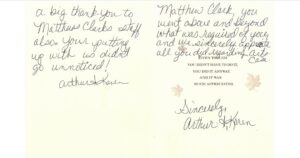 a big thank you to
Matthew Clarks staff
also. Your putting
up with us didn't
go unnoticed!
Arthur & Karen
Matthew Clark, you
went above and beyond
what was required of you
and we sincerely appreciate
all you did regarding Arts
Case
YOU DIDN'T HAVE TO DO IT,
YOU DID IT ANYWAY.
AND IT WAS
SO APPRECIATED.
Sincerely,
Arthur & Karen